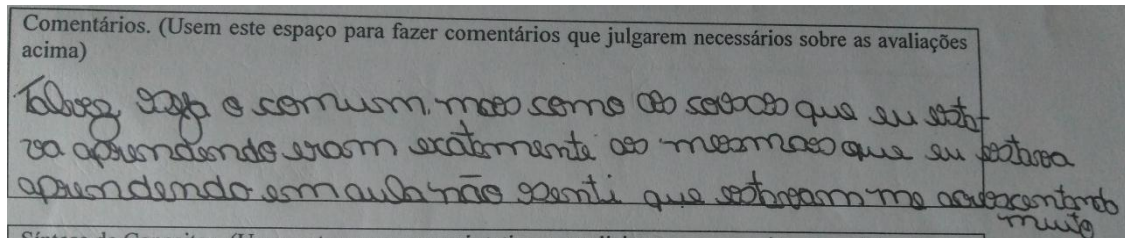 Comentários. (Usem este espaço para fazer comentários que julgarem necessários sobre as avaliações
acima)
Talvez seja o comum, mas como as coisas que eu esta-
va aprendendo eram exatamente as mesmas que eu estava
aprendendo em aula não senti que estavam me acrescentando
muito